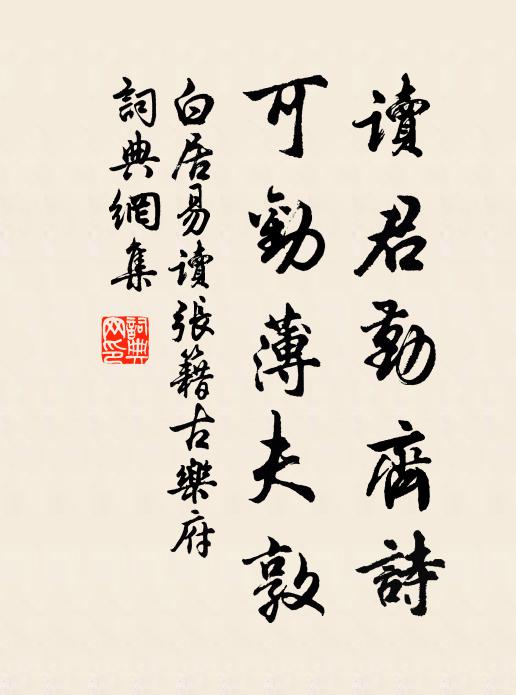 讀君勤齊詩
可勸薄夫敦
白居易讀張籍古樂府
詞典網集
詞典網印